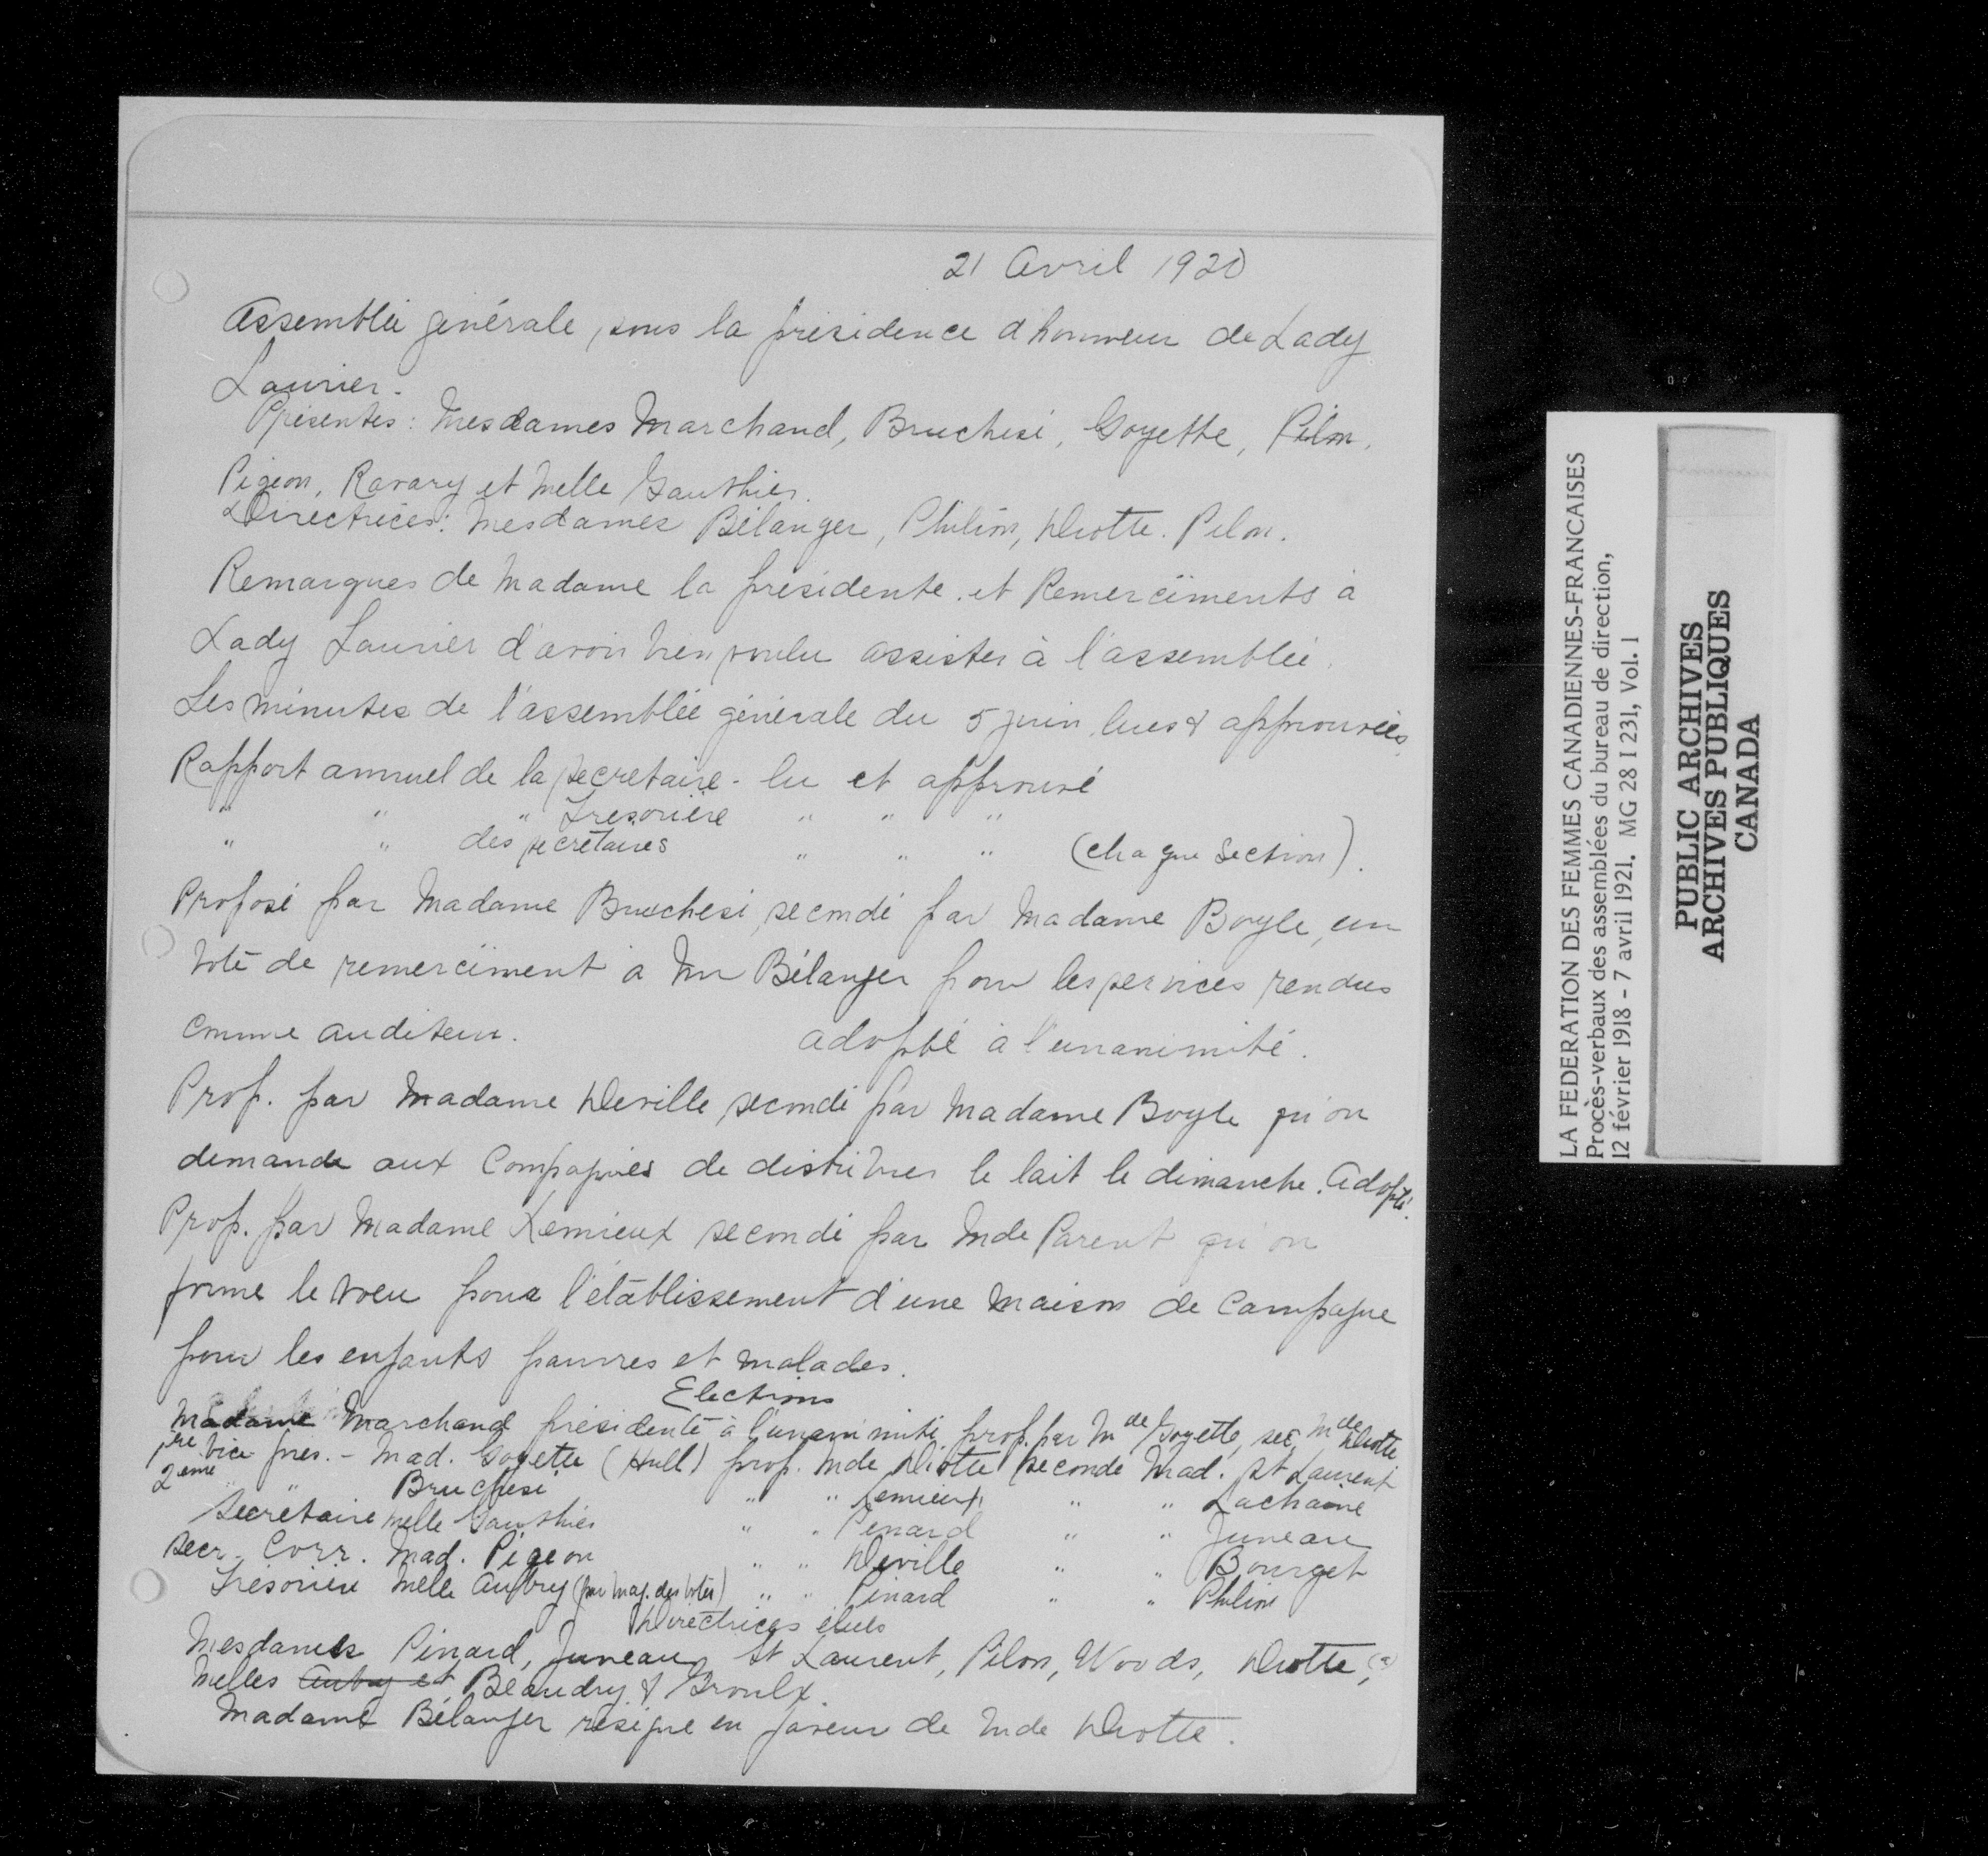 21 Avril 1920
Assemblée générale, sous la présidence d'honneur de Lady
Laurier.
Présentes: Mesdames Marchand, Bruchési, Goyette, Pilon,
Pigeon, Ravary et Melle Gauthier.
Directrices: Mesdames Bélanger, Philion, Diotte. Pilon.
Remarques de Madame la présidente. et Remerciments à
Lady Laurier d'avoir bien voulu assister à l'assemblée.
Les minutes de l'assemblée générale du 5 juin, lues & approuvées,
Rapport annuel de la secretaire - lu et approuvé
" " " Tresorière " " "
" " des secrétaires " " " (chaque section).
Proposé par Madame Bruchesi, secondé par Madame Boyle, un
vote de remerciment à Mr Bélanger pour les services rendus
comme auditeur. adopté à l'unanimité.
Prop. par Madame Deville, secondé par Madame Boyle qu'on
demande aux Compagnies de distribuer le lait le dimanche. Adopté.
Prop. par Madame Lemieux secondé par Mde Parent qu'on
forme le voeu pour l'établissement d'une maison de campagne
pour les enfants pauvres et malades.
Elections
Madame Marchand présidente à l'unanimité prop. par Mde Goyette, sec. Mde Diotte
1ère Vice-pres. - Mad. Goyette (Hull) prop. Mde Diotte secondé Mad. St Laurent
2ème " " Bruchesi " " Lemieux " " Lachaine
Secrétaire Melle Gauthier " " Pinard " " Juneau
Secr. Corr. Mad. Pigeon " " Deville " " Bourget
Trésorière Melle Aubry (par maj. des votes) " " Pinard " " Philion
Directrices élues
Mesdames Pinard, Juneau, St Laurent, Pilon, Woods, Diotte, (?)
Melles Aubry et Beaudry & Groulx.
Madame Bélanger résigne en faveur de Mde Diotte.
LA FEDERATION DES FEMMES CANADIENNES-FRANCAISES
Procès-verbaux des assemblées du bureau de direction,
12 février 1918 - 7 avril 1921. MG 28 I 231, Vol. 1
PUBLIC ARCHIVES
ARCHIVES PUBLIQUES
CANADA